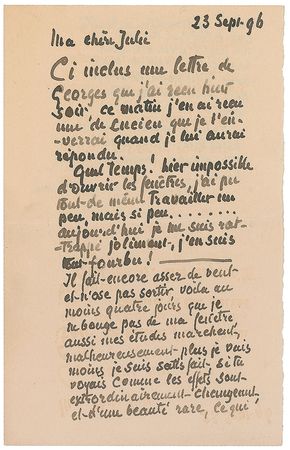 23 Sept. 96
Ma chère Julie
Ci inclus une lettre de
Georges que j'ai reçu hier
soir, ce matin j'en ai reçu
une de Lucien que je t'en-
verrai quand je lui aurai
répondu.
Quel temps! hier impossible
d'ouvrir les fenêtres, j'ai pu
tout de même travailler un
peu, mais si peu........
aujourd'hui je me suis rat-
trappé joliment, j'en suis
tout fourbu!
Il fait encore assez de vent
et n'ose pas sortir voilà au
moins quatre jours que je
ne bouge pas de ma fenêtre
aussi mes études marchent,
malheureusement plus je vais
moins je suis satisfait, si tu
voyais comme les effets sont
extraordinairement changeant,
et d'une beauté rare, ce qui,